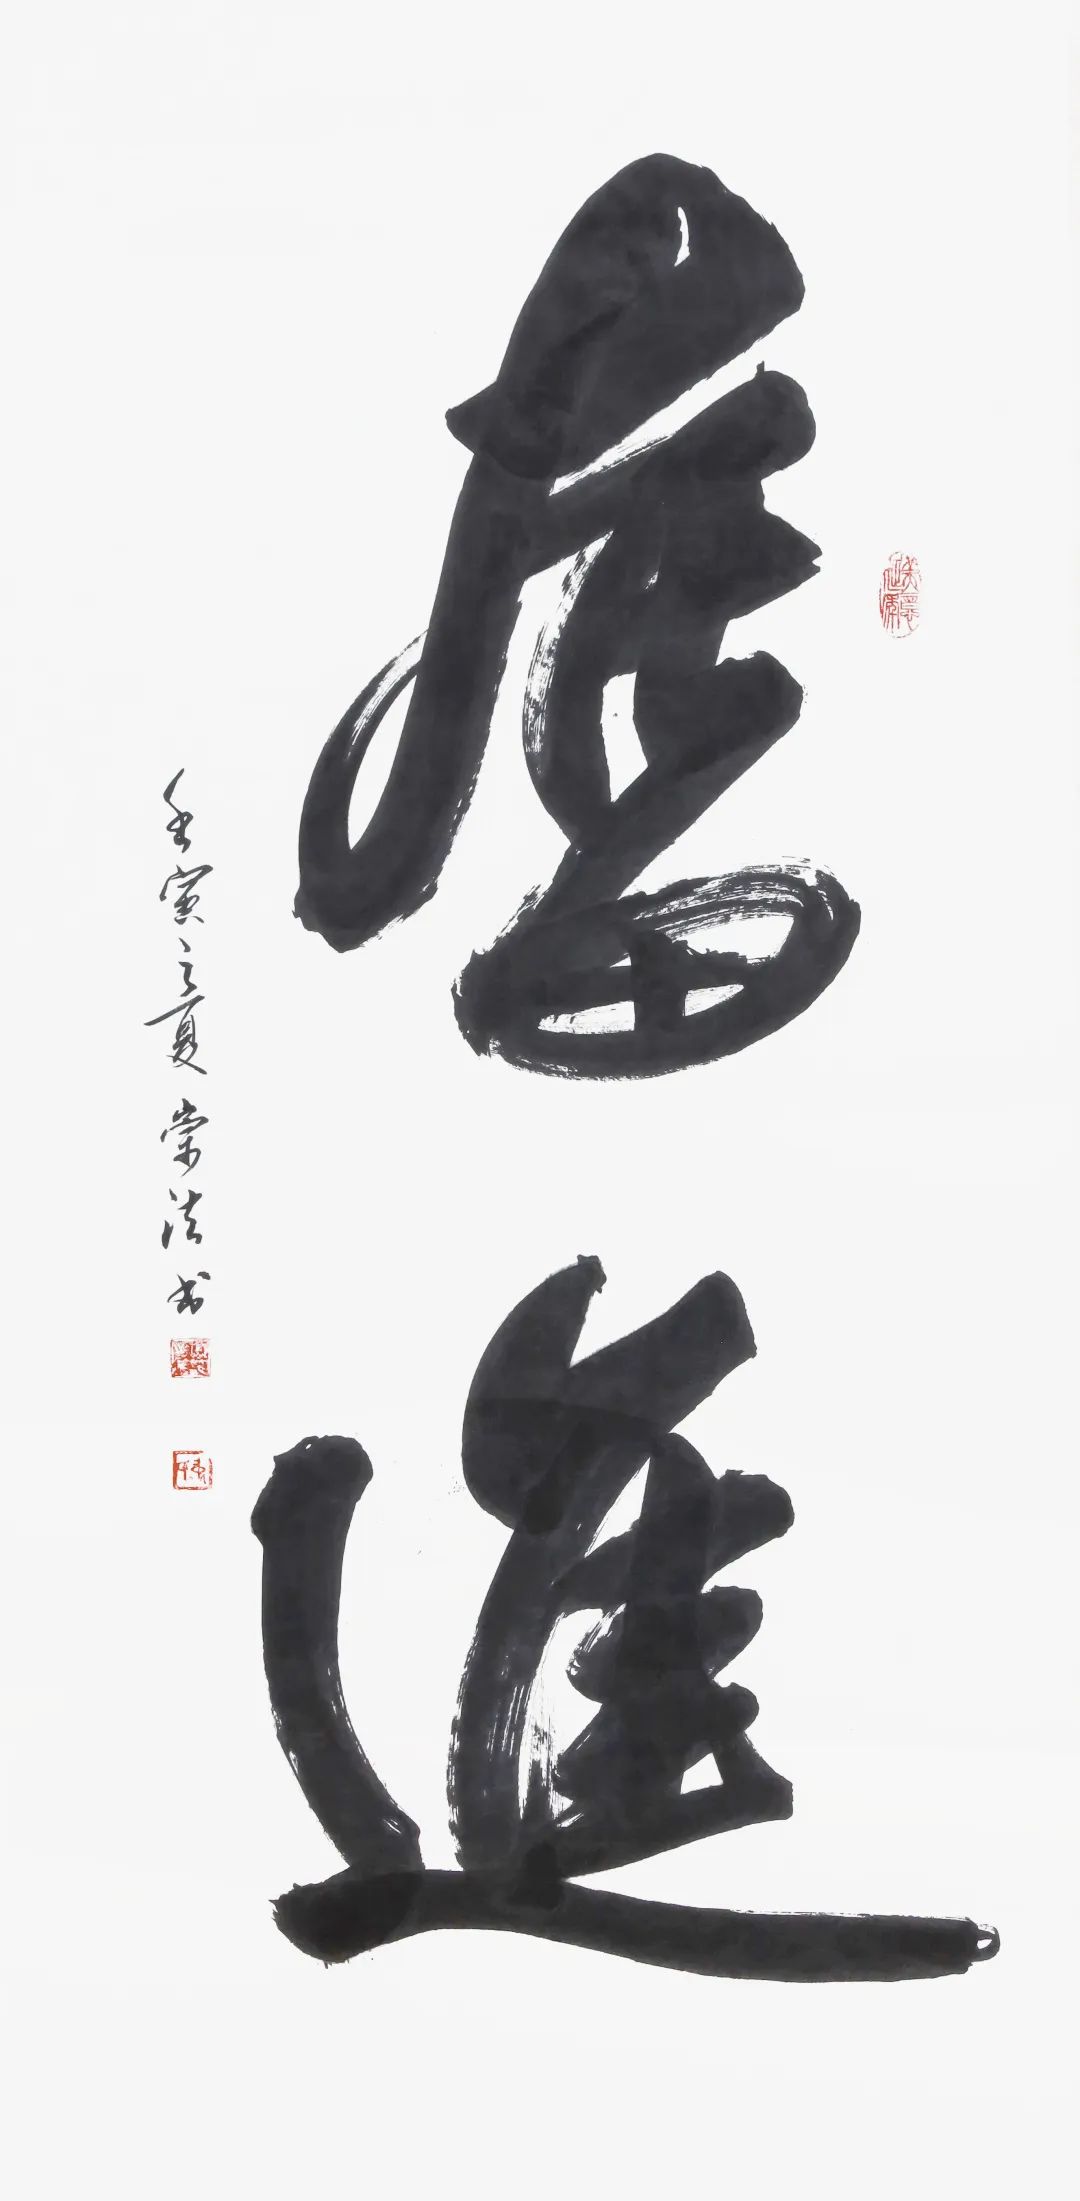 奮進
壬寅之夏 崇法书